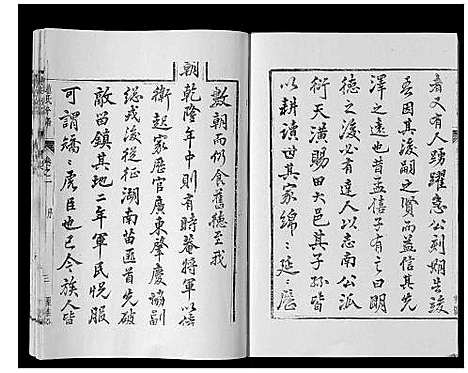 者又有人踴躍急公刻期告竣
喜因其後嗣之賢而益信其先
澤之遠也昔孟僖子有之曰明
德之後必有達人以志南公派
衍天潢賜田大邑其子孫皆
以耕讀世其家綿綿延延歷
數朝而仍食舊德至我
朝
乾隆年中則有時菴將軍以侍
衛起家歷官廣東肇慶協副
總戎後從征湖南苗匪首先破
敵留鎮其地二年軍民悅服
可謂矯矯虎臣也已今族人皆
卷之一